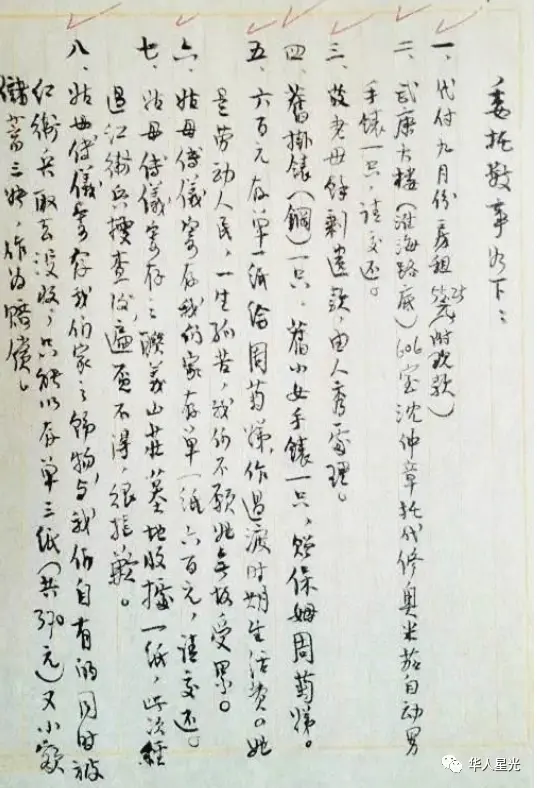 委托数事如下：
一、代付九月份房租55.29元（附现款）
二、武康大楼（淮海路底）606室沈仲章托代修奥米茄自动男
手錶一只，请交还。
三、故老母餘剩遗款，由人秀處理。
四、舊掛錶（鋼）一只，舊小女手錶一只，赠保姆周菊娣。
五、六百元存单一纸给周菊娣，作過渡时期生活费。她
是劳动人民，一生孤苦，我们不愿她無故受累。
六、姑母傅儀寄存我们家存单一纸六百元，请交还。
七、姑母傅儀寄存之聯義山莊墓地收據一纸，此次經
過红衛兵搜查後，遍覓不得，很抱歉。
八、姑母傅儀寄存我们家之飾物，与我们自有的同时被
红衛兵取去没收，只能以存单三纸（共370元）又小额
儲蓄三张，作为賠償。
华人星光